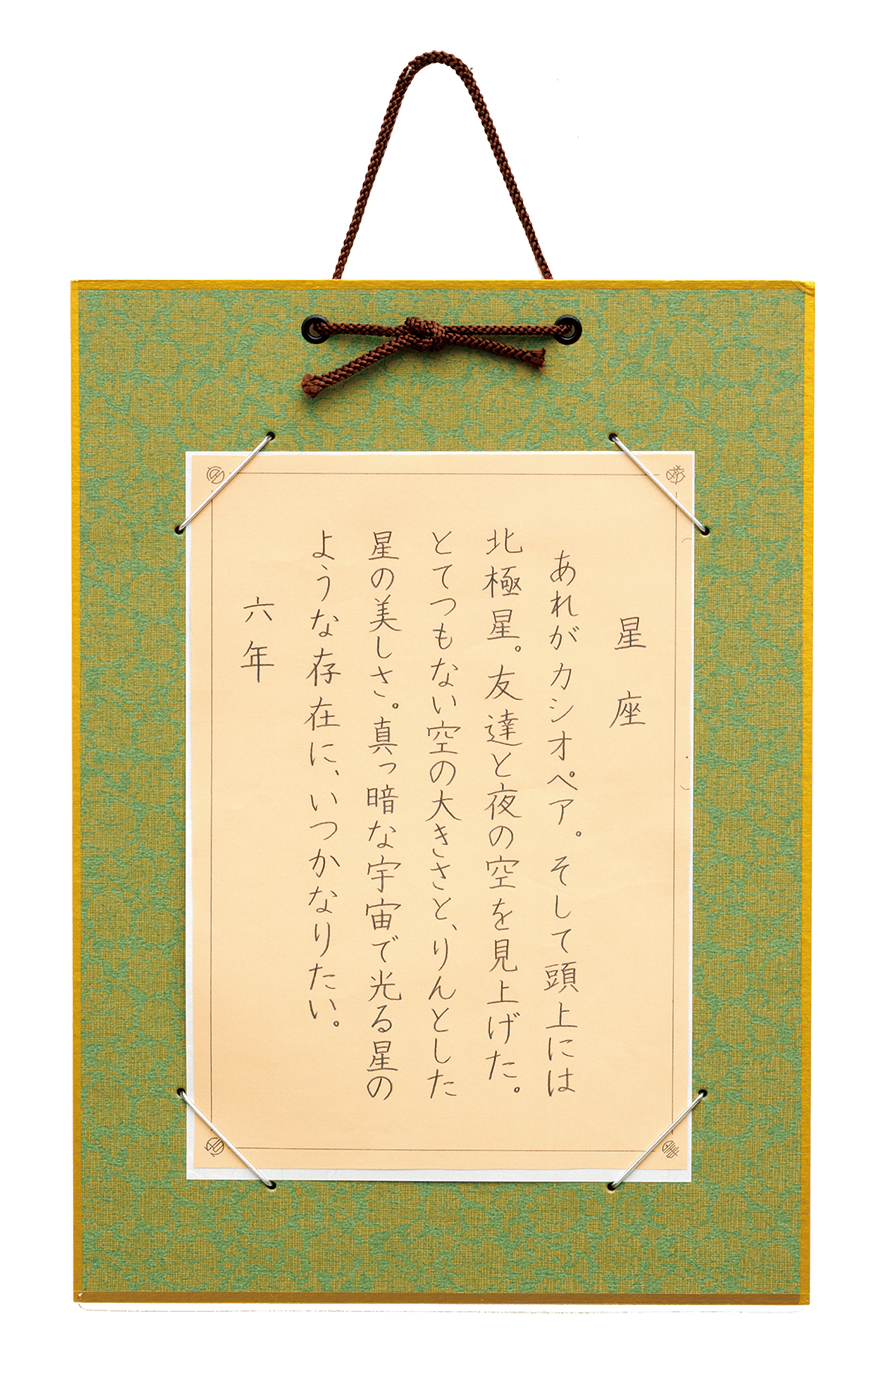 星座
あれがカシオペア。そして頭上には
北極星。友達と夜の空を見上げた。
とてつもない空の大きさと、りんとした
星の美しさ。真っ暗な宇宙で光る星の
ような存在に、いつかなりたい。
六年